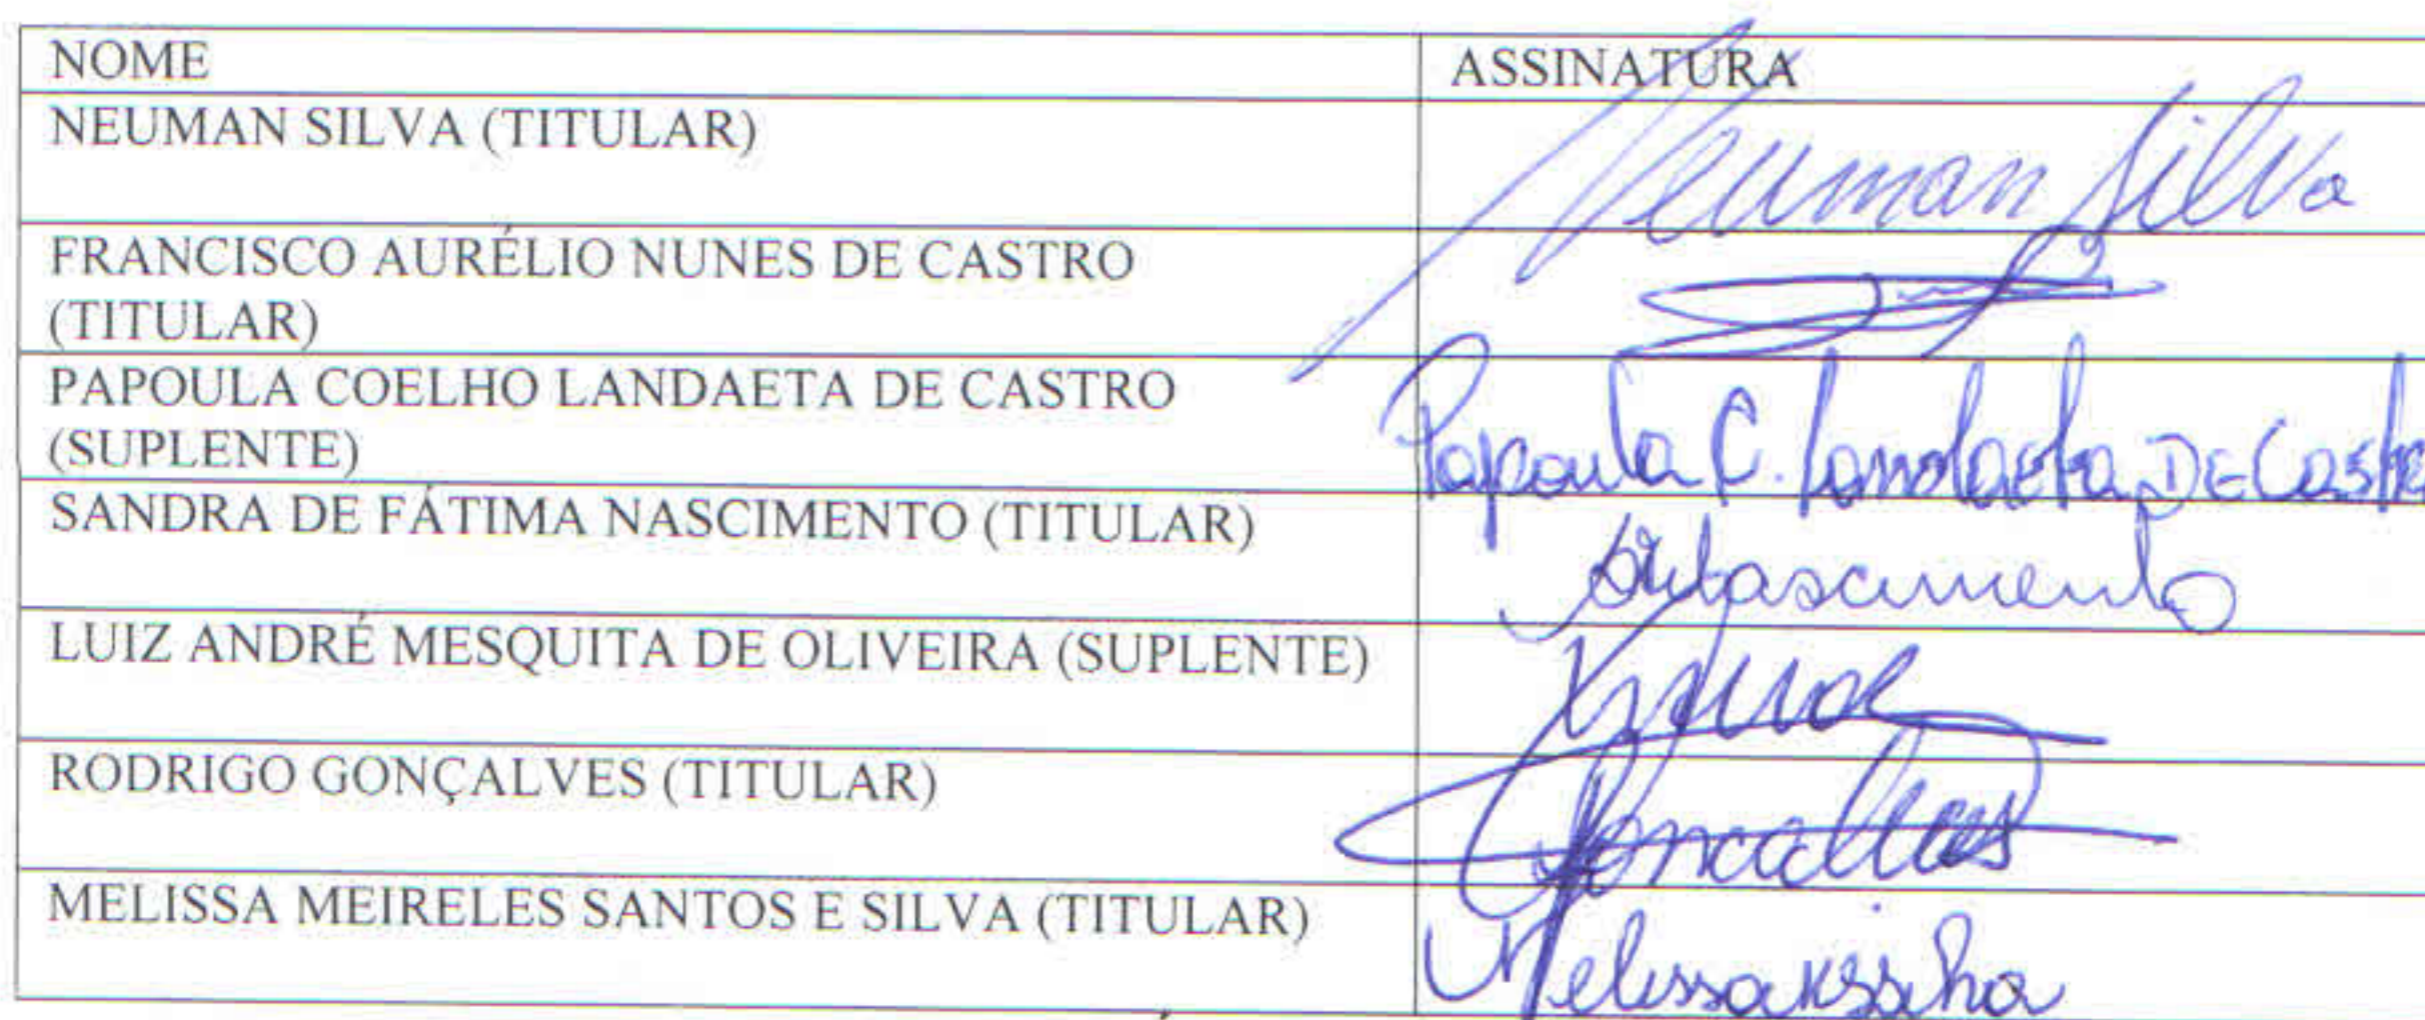 NOME ASSINATURA
NEUMAN SILVA (TITULAR) Neuman Silva
FRANCISCO AURÉLIO NUNES DE CASTRO
(TITULAR)
PAPOULA COELHO LANDAETA DE CASTRO
(SUPLENTE) Papoula C. Landaeta DE Castro
SANDRA DE FÁTIMA NASCIMENTO (TITULAR)
LUIZ ANDRÉ MESQUITA DE OLIVEIRA (SUPLENTE)
RODRIGO GONÇALVES (TITULAR)
MELISSA MEIRELES SANTOS E SILVA (TITULAR) Melissa